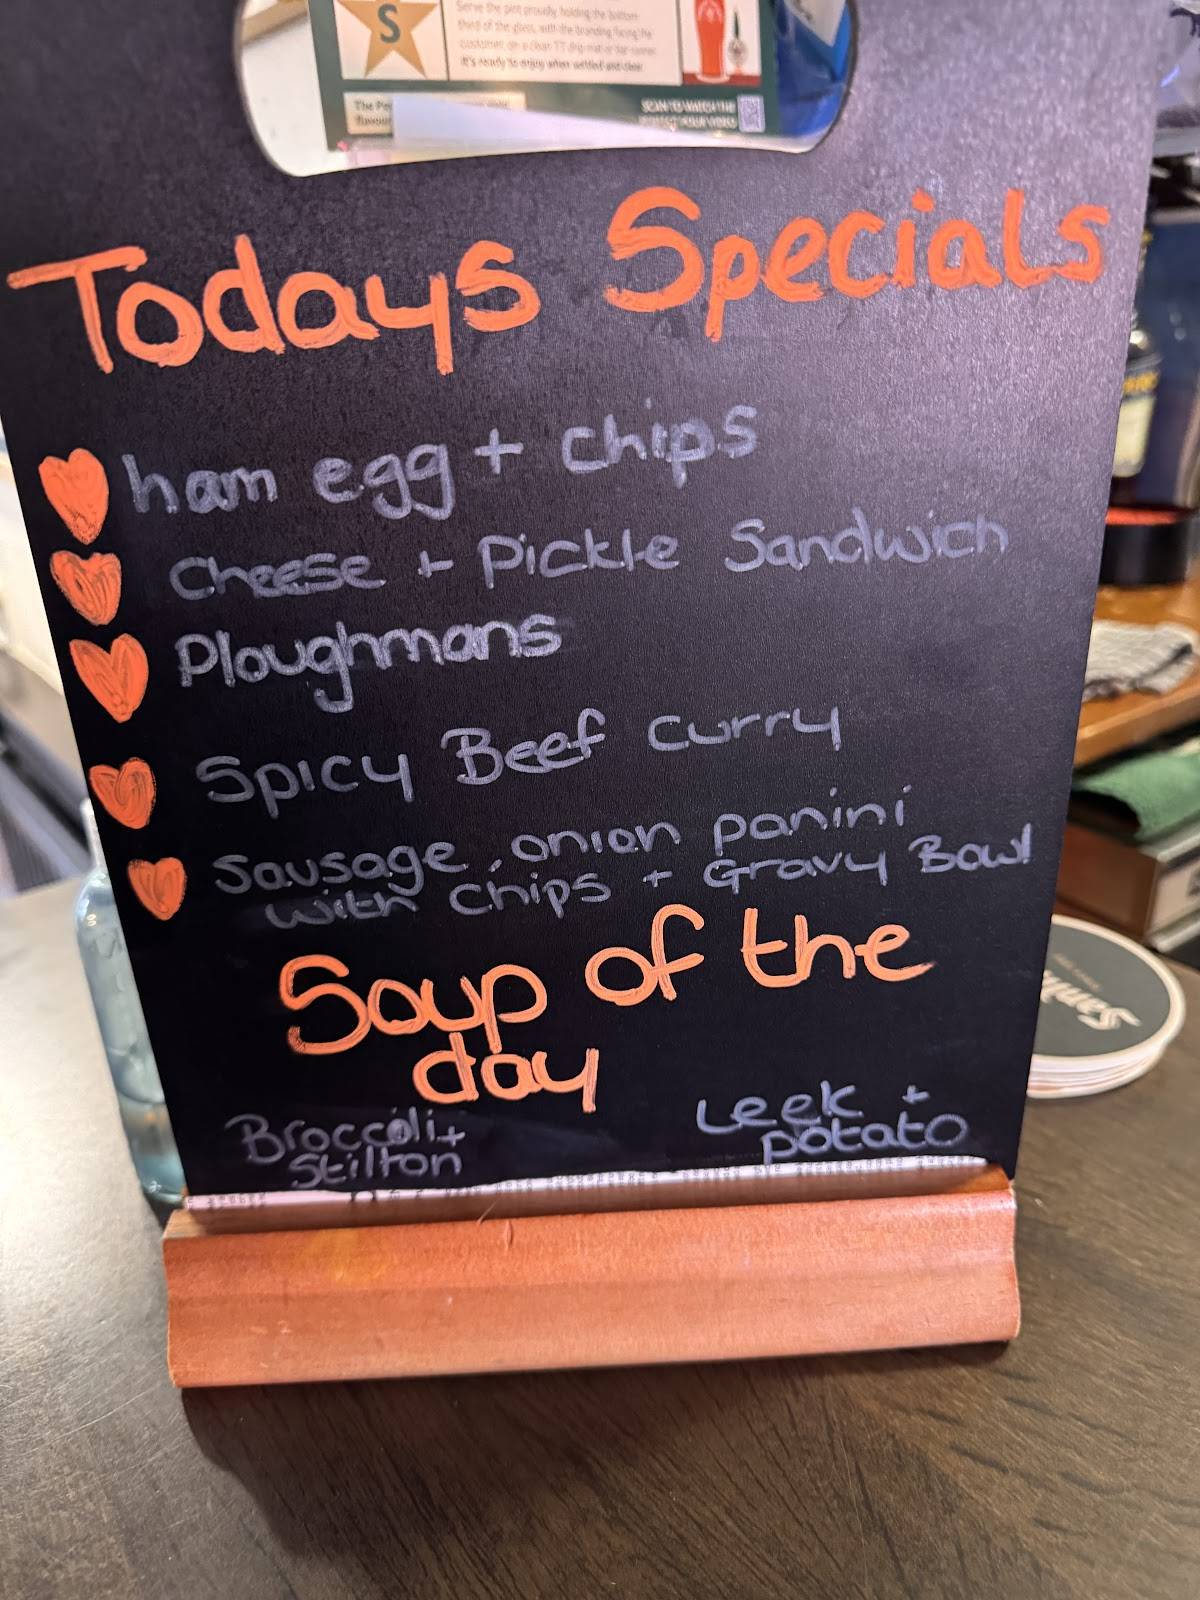 S
Serve the pint proudly holding the bottom
third of the glass, with the branding facing the
customer, on a clean TT drip mat or bar runner.
It's ready to enjoy when settled and clear.
The
flavour
SCAN TO WATCH THE
PERFECT POUR VIDEO
Todays Specials
ham egg + chips
Cheese + Pickle Sandwich
Ploughmans
Spicy Beef curry
Sausage, onion panini
with chips + Gravy Bowl
Soup of the
day
Broccoli +
Stilton
Leek +
potato